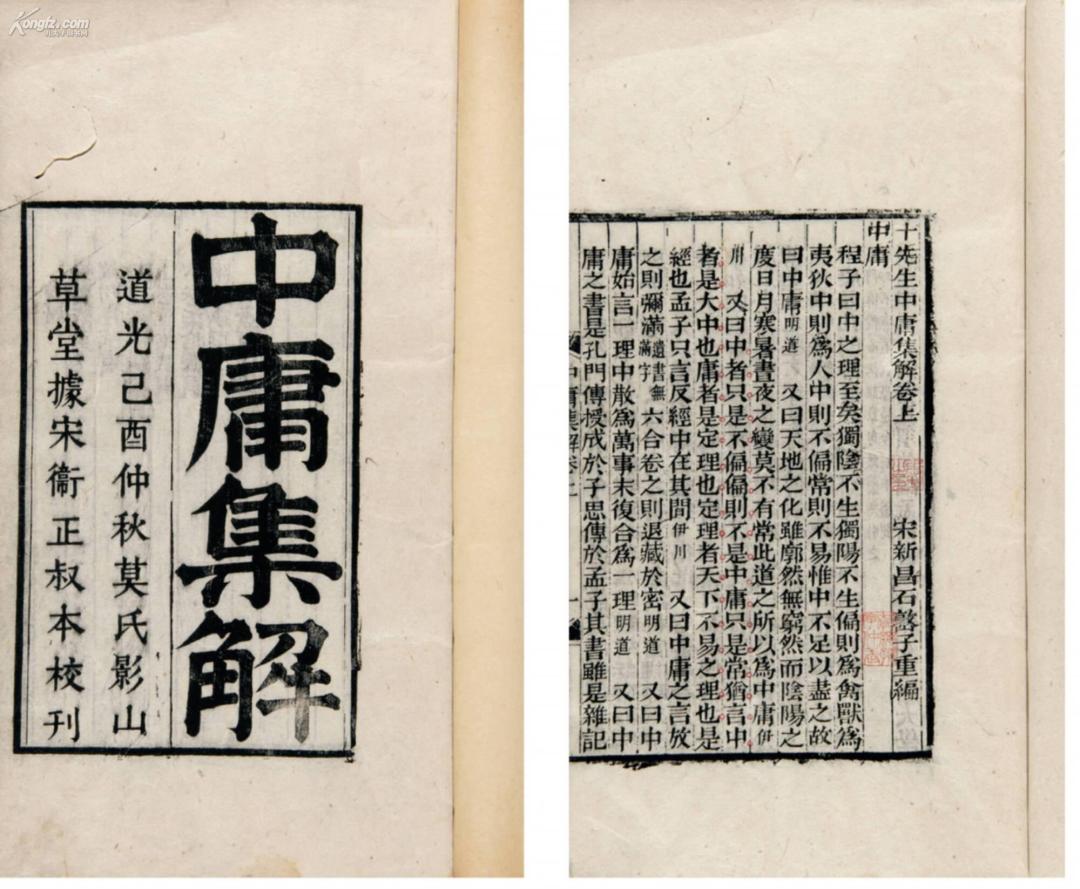 Kongfz.com
中庸集解
道光己酉仲秋莫氏影山
草堂據宋衞正叔本校刊
十先生中庸集解卷上 宋新昌石子重編
中庸
程子曰中之理至矣獨陰不生獨陽不生偏則爲禽獸爲
夷狄中則爲人中則不偏常則不易惟中不足以盡之故
曰中庸明道 又曰天地之化雖廓然無窮然而陰陽之
度日月寒暑晝夜之變莫不有常此道之所以爲中庸伊
川 又曰中者只是不偏偏則不是中庸只是常猶言中
者是大中也庸者是定理也定理者天下不易之理也是
經也孟子只言反經中在其間伊川 又曰中庸之言放
之則彌滿遺書無滿字六合卷之則退藏於密明道 又曰中
庸始言一理中散爲萬事末復合爲一理明道 又曰中
庸之書是孔門傳授成於子思傳於孟子其書雖是雜記